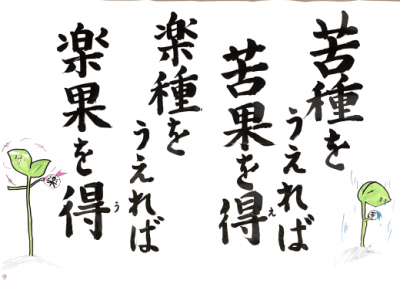 苦種を
うえれば
苦果を得
え
楽種を
うえれば
楽果を得
う